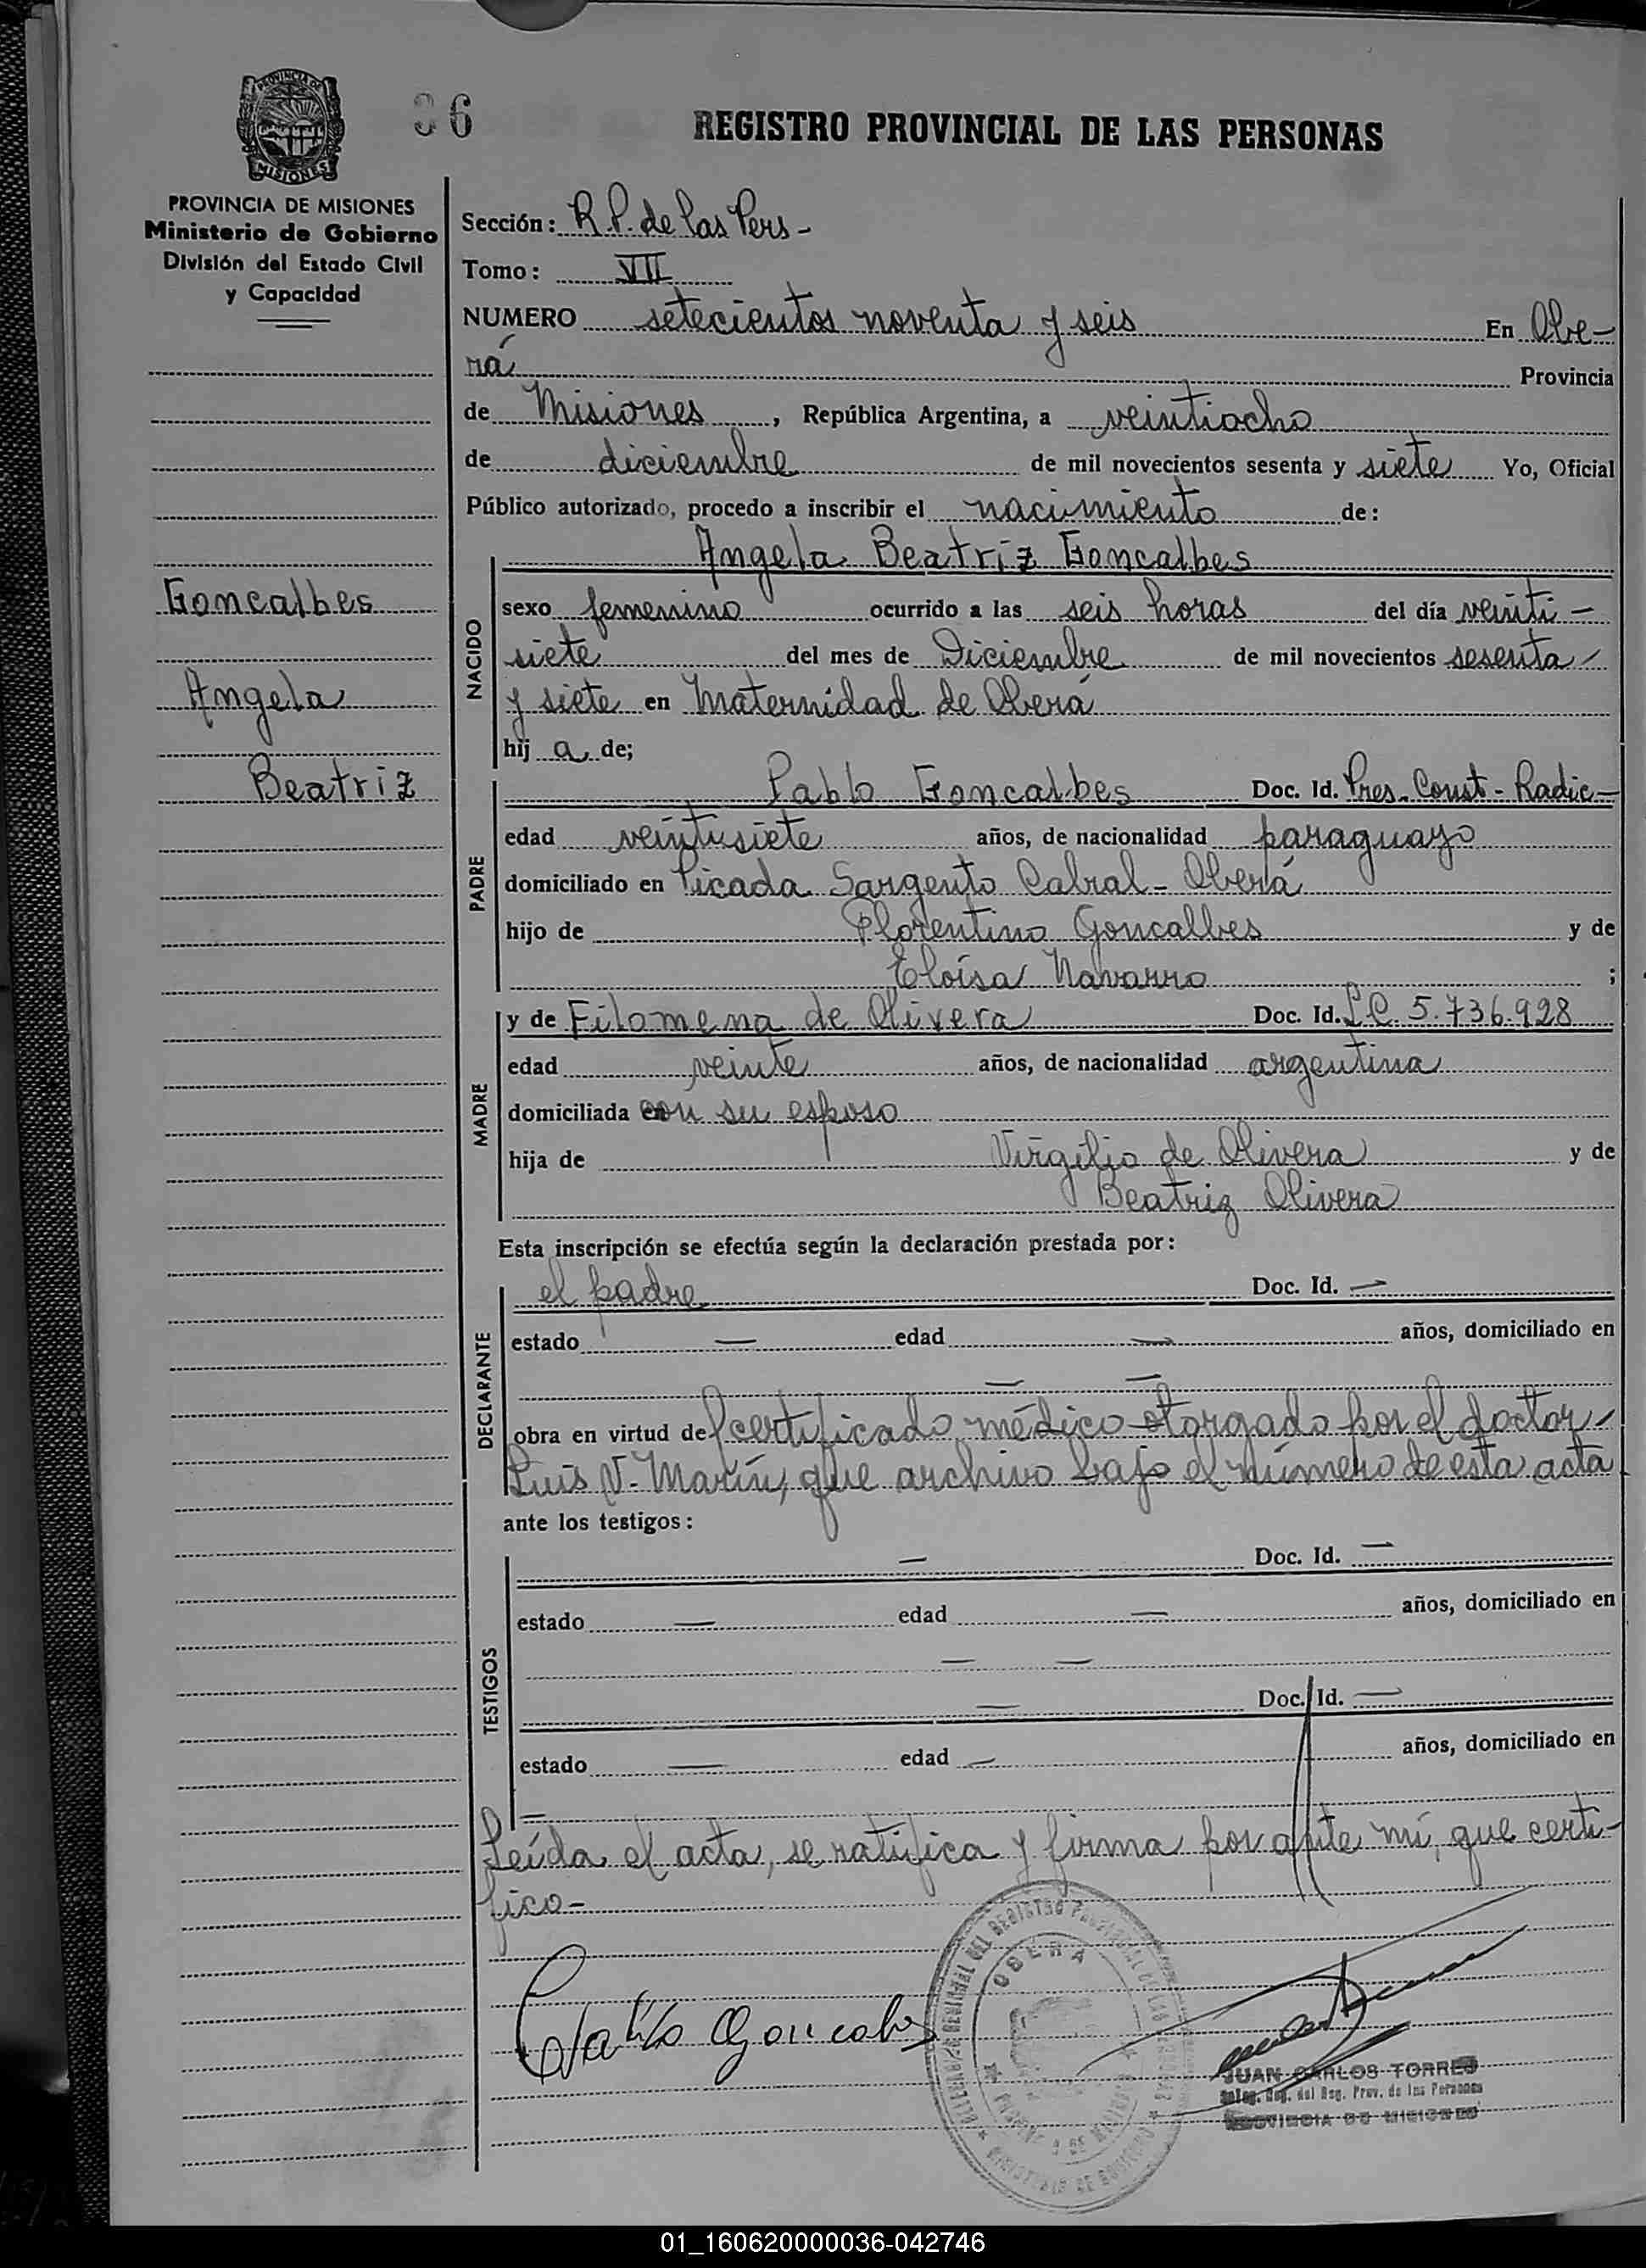 PROVINCIA DE
MISIONES
36
REGISTRO PROVINCIAL DE LAS PERSONAS
PROVINCIA DE MISIONES
Ministerio de Gobierno
División del Estado Civil
y Capacidad
Goncalbes
Angela
Beatriz
Sección: R.P. de las Pers -
Tomo: VII
NUMERO setecientos noventa y seis En Obe-
rá Provincia
de Misiones, República Argentina, a veintiocho
de diciembre de mil novecientos sesenta y siete Yo, Oficial
Público autorizado, procedo a inscribir el nacimiento de:
NACIDO
Angela Beatriz Goncalbes
sexo femenino ocurrido a las seis horas del día veinti-
siete del mes de Diciembre de mil novecientos sesenta
y siete en Maternidad de Oberá
hij a de;
PADRE
Pablo Goncalbes Doc. Id. Pres. Const - Radic-
edad veintisiete años, de nacionalidad paraguayo
domiciliado en Picada Sargento Cabral - Oberá
hijo de Florentino Goncalbes y de
Eloísa Navarro ;
MADRE
y de Filomena de Olivera Doc. Id. L.C. 5.736.928
edad veinte años, de nacionalidad argentina
domiciliada con su esposo
hija de Virgilio de Olivera y de
Beatriz Olivera
Esta inscripción se efectúa según la declaración prestada por:
DECLARANTE
el padre Doc. Id. —
estado — edad — años, domiciliado en
— —
obra en virtud del certificado médico otorgado por el doctor
Luis V. Marín, que archivo bajo el número de esta acta
ante los testigos:
TESTIGOS
— Doc. Id. —
estado — edad — años, domiciliado en
— —
— Doc. Id. —
estado — edad — años, domiciliado en
—
Leída el acta, se ratifica y firma por ante mí, que certi-
fico-
Pablo Goncalbes
OBERA
JUAN CARLOS TORRES
del Reg. Prov. de las Personas
PROVINCIA DE MISIONES
01_160620000036-042746